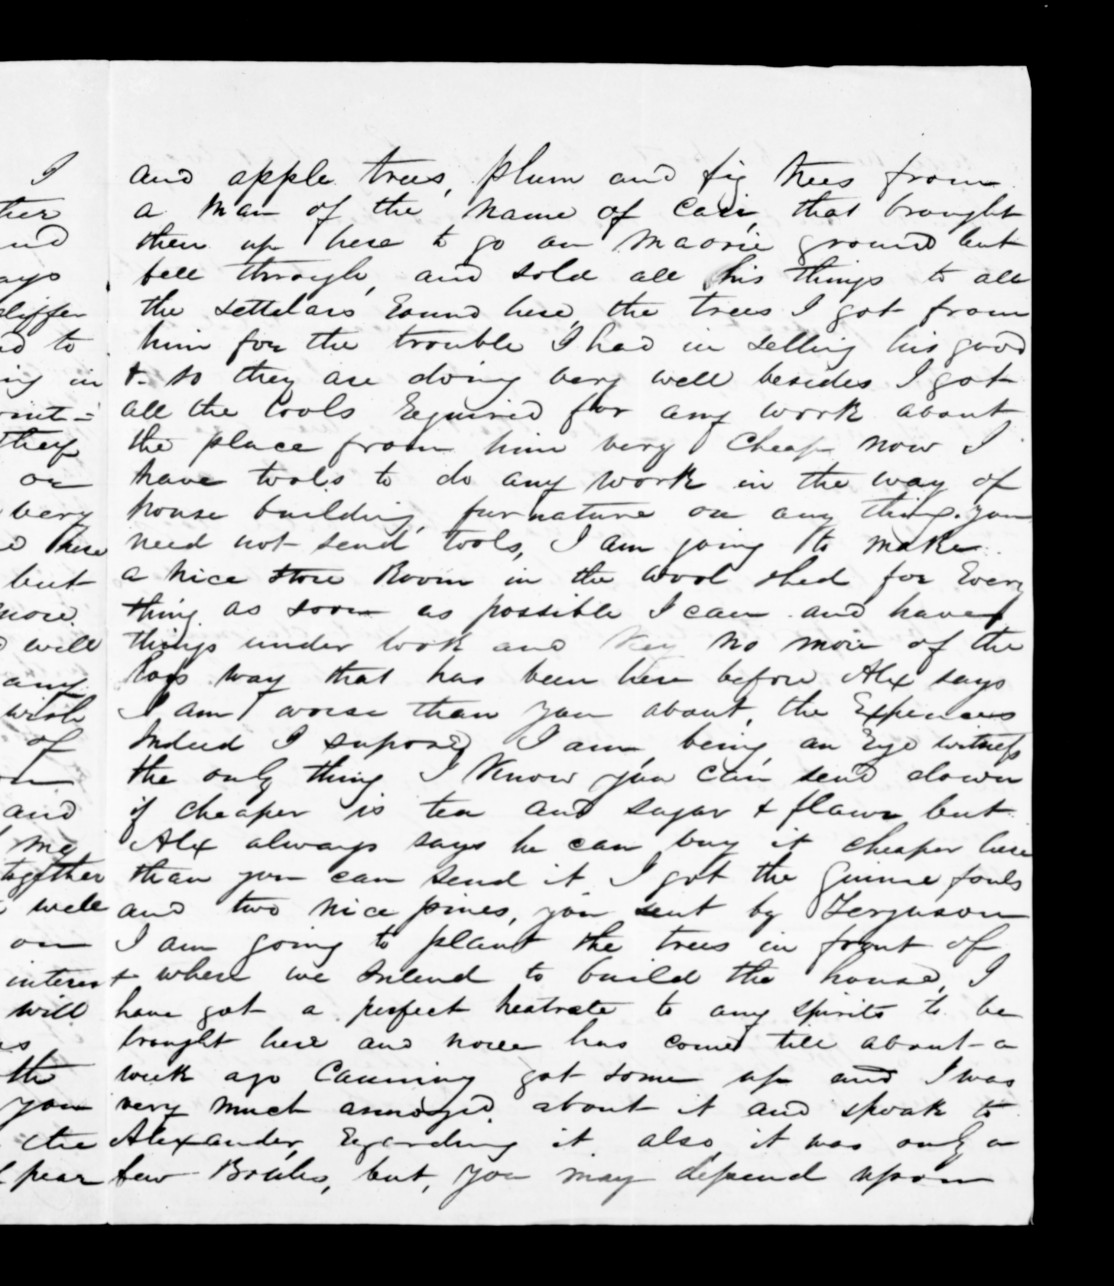 and apple trees, plum and fig trees from
a man of the name of Carr, that brought
them up here to go on Maorie ground but
fell through, and sold all his things to all
the settelars round here, the trees I got from
him for the trouble I had in selling his good
&. so they are doing very well besides I got
all the tools required for any work about
the place from him very cheap now I
have tools to do any work in the way of
house building, furnature or any thing. you
need not send tools, I am going to make
a nice store Room in the wool shed for Every
thing as soon as possible I can and have
things under look and Key no more of the
way that has been here before Alex says
I am worse than you about, the Expences
Indeed I suposed I am being an Eye witness
the only thing I Know you can send down
if cheaper is tea and sugar & flawr but
Alex always says he can buy it cheaper here
than you can send it I got the Guinne fouls
and two nice pines, you sent by Ferguson
I am going to plant the trees in front of
where we Intend to build the house, I
have got a perfect heatrete to any spirits to be
brought here and none has come till about a
week ago Canning got some up and I was
very much annoyed about it and spoak to
Alexander, Regarding it also it was only a
few but, you may depend upon
I
ther
and
ays
differ
ad to
ing in
they
or
very
here
but
more
will
any
wish
of
and
me
together
well
on
interest
will
as
the
you
the
pear